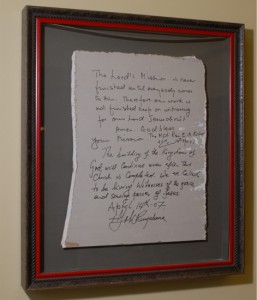 The Lord's Mission is never
finished until everybody comes
to Him. Therefore our work is
not finished keep on witnessing
for our Lord Jesus Christ
Amen. God bless
your Mission
The building of the Kingdom of
God, will Continue even after this
Church is Completed. We are Called
to be living Witnesses of the grace
and saving power of Jesus
April 14th - 07